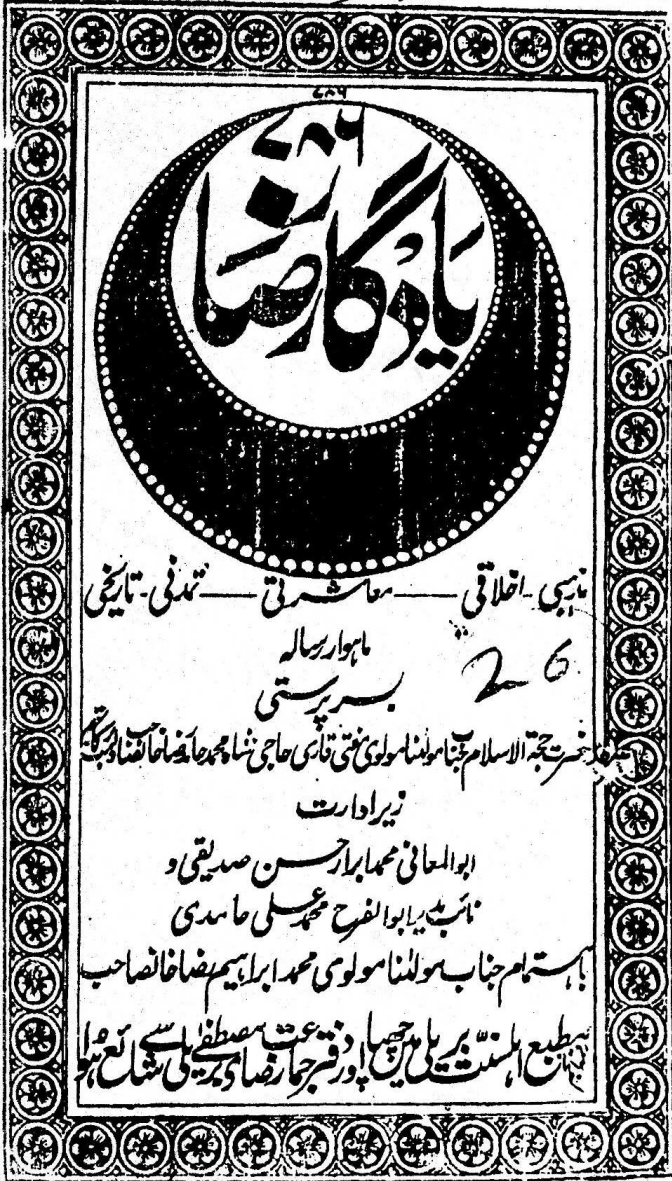 ۷۸۶
۷۸۶
یادگار رضا
مذہبی - اخلاقی — معاشرتی — تمدنی - تاریخی
ماہوار رسالہ
26
بسرپرستی
حضرت حجۃ الاسلام جناب مولٰنا مولوی مفتی قاری حاجی شاہ محمد حامد رضا خاں صاحب
زیر ادارت
ابوالمعانی محمد ابرار حسن صدیقی و
نائب مدیر ابوالفرح محمد علی حامدی
باہتمام جناب مولٰنا مولوی محمد ابراہیم رضا خانصاحب
مطبع اہلسنت بریلی میں چھپا اور دفتر جماعت رضائے مصطفٰے بریلی سے شائع ہوا